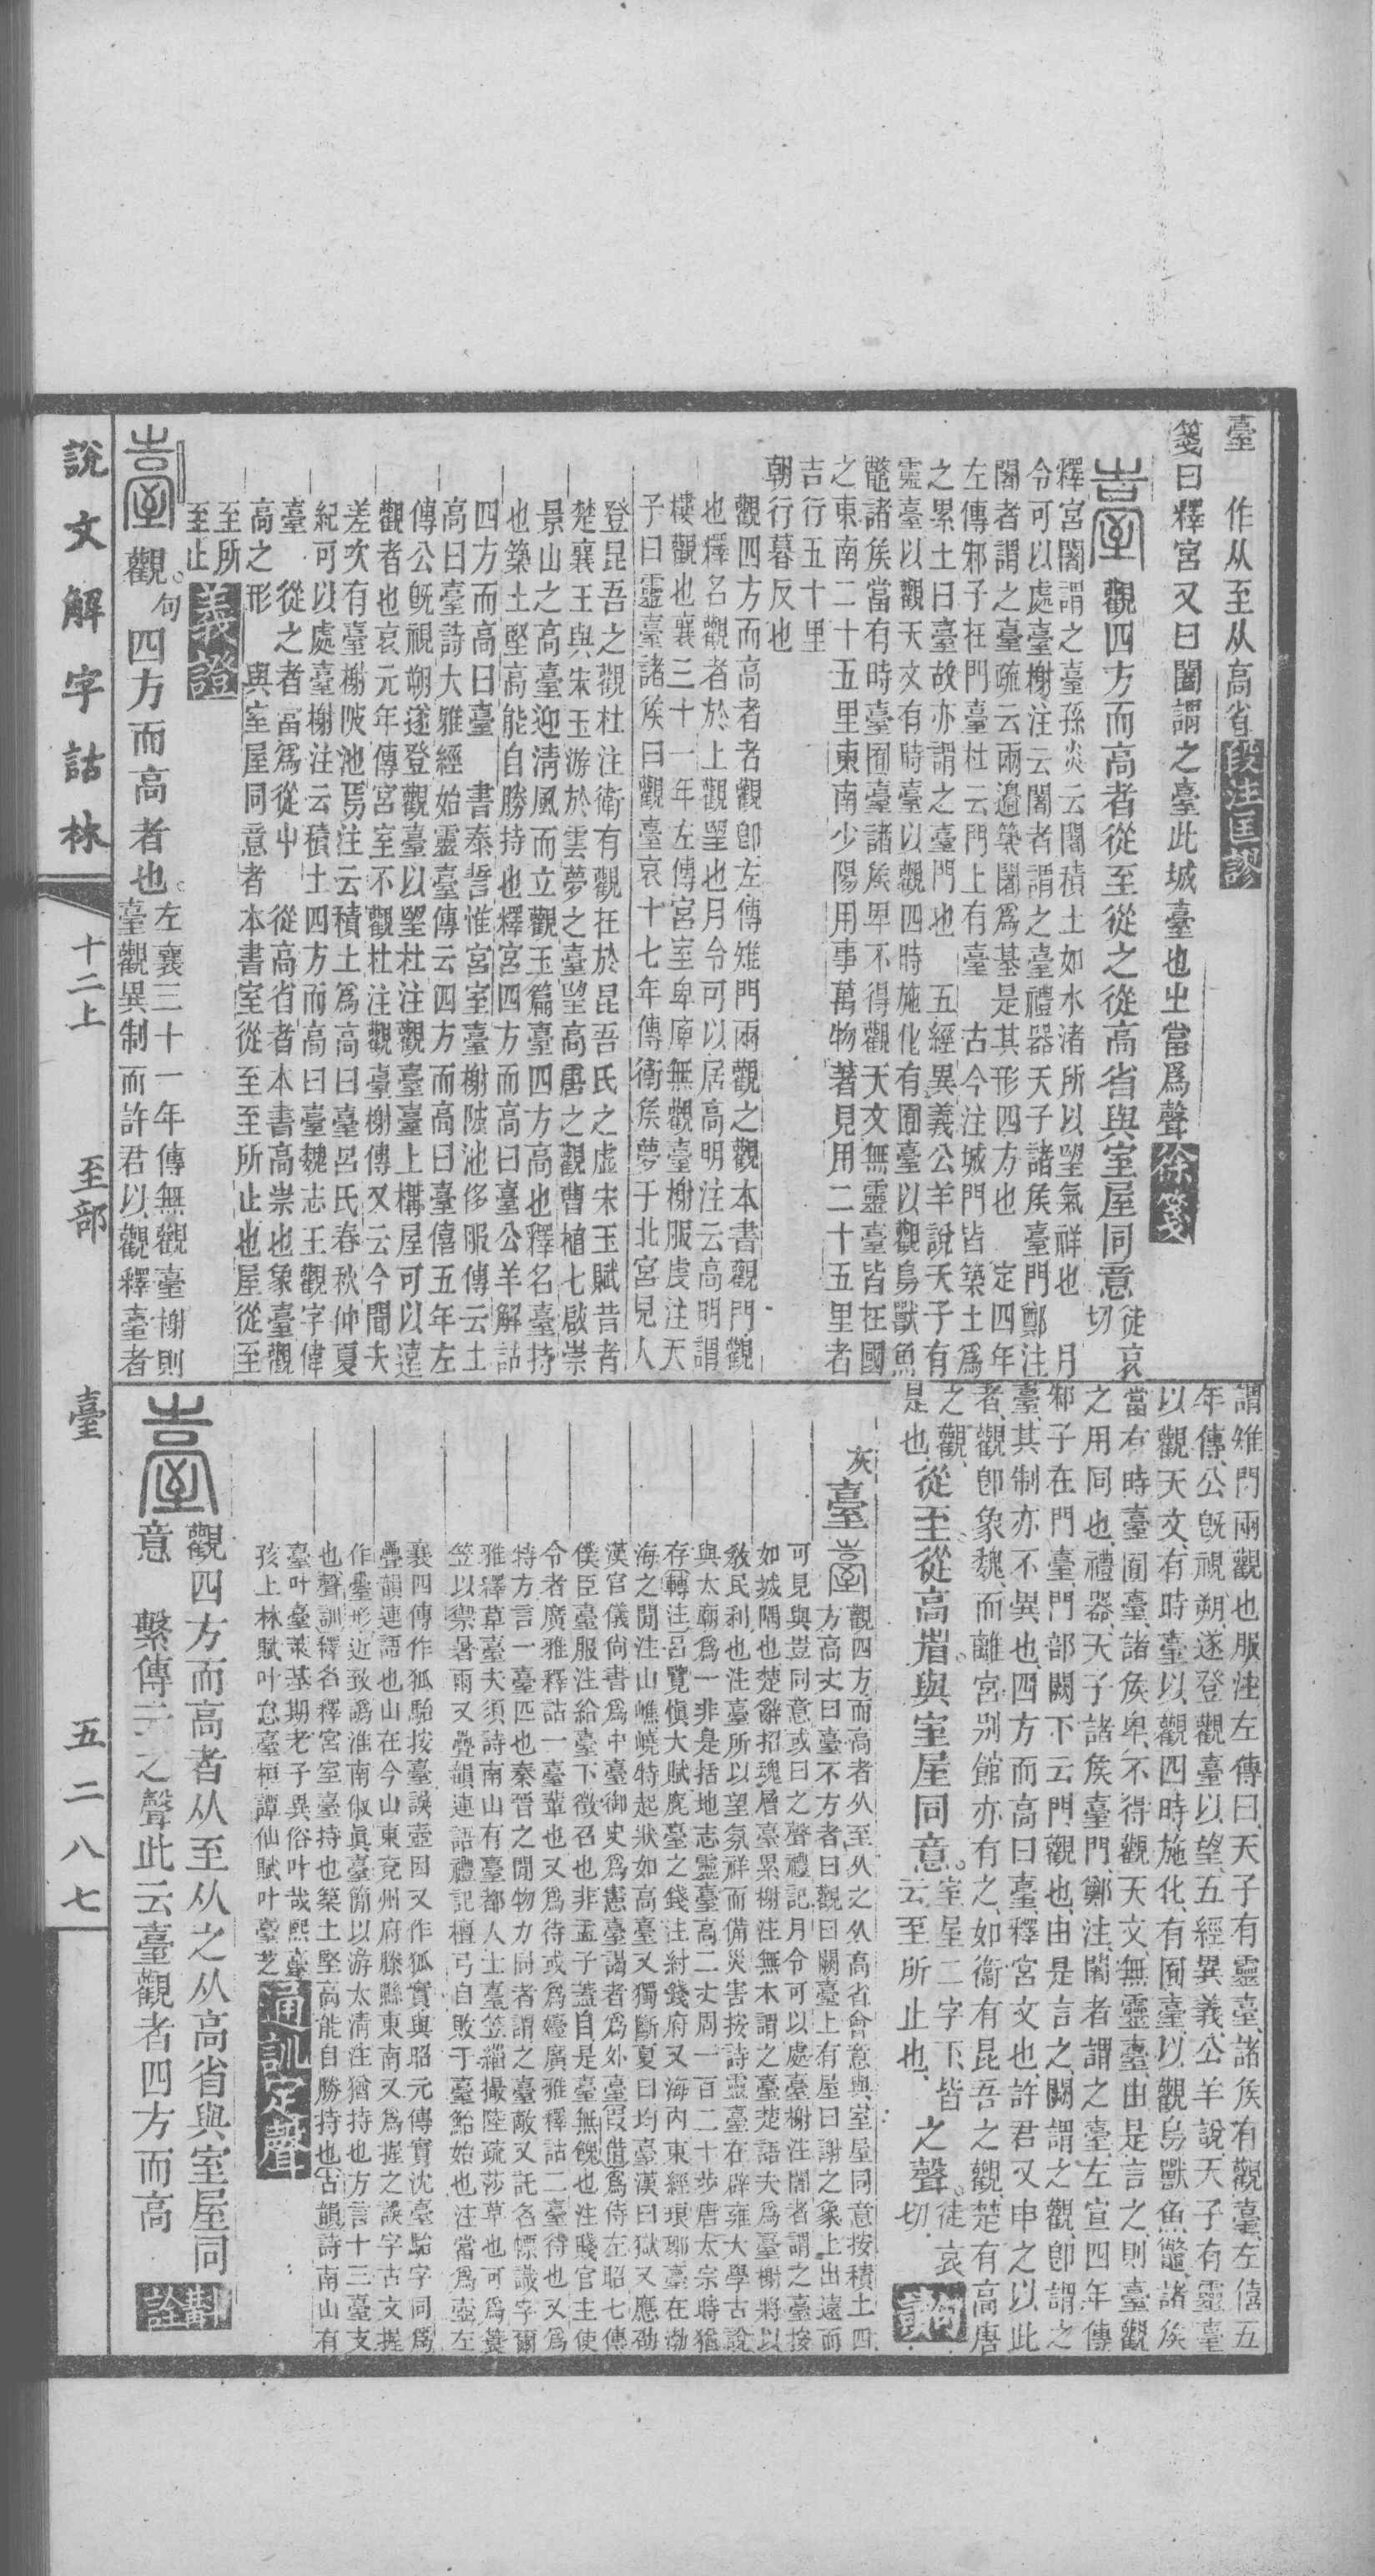 臺　作从至从高省段注匡謬
箋曰釋宮又曰闍謂之臺此城臺也㞢當爲聲徐箋
觀四方而高者從至從之從高省與室屋同意徒哀切
釋宮闍謂之臺孫炎云闍積土如水渚所以望氣祥也　月
令可以處臺榭注云闍者謂之臺禮器天子諸矦臺門鄭注
闍者謂之臺疏云兩邉築闍爲基是其形四方也　定四年
左傳邾子在門臺杜云門上有臺　古今注城門皆築土爲
之累土曰臺故亦謂之臺門也　五經異義公羊說天子有
靈臺以觀天文有時臺以觀四時施化有囿臺以觀鳥獸魚
鼈諸矦當有時臺囿臺諸矦卑不得觀天文無靈臺皆在國
之東南二十五里東南少陽用事萬物著見用二十五里者
吉行五十里
朝行暮反也
觀四方而高者者觀卽左傳雉門兩觀之觀本書觀門觀
也釋名觀者於上觀望也月令可以居高明注云高明謂
樓觀也襄三十一年左傳宮室卑庳無觀臺榭服虔注天
子曰靈臺諸矦曰觀臺哀十七年傳衛矦夢于北宮見人
登昆吾之觀杜注衛有觀在於昆吾氏之虛宋玉賦昔者
楚襄王與宋玉游於雲夢之臺望高唐之觀曹植七啟崇
景山之高臺迎清風而立觀玉篇臺四方高也釋名臺持
也築土堅高能自勝持也釋宮四方而高曰臺公羊解詁
四方而高曰臺　書泰誓惟宮室臺榭陂池侈服傳云土
高曰臺詩大雅經始靈臺傳云四方而高曰臺僖五年左
傳公旣視朔遂登觀臺以望杜注觀臺臺上構屋可以遠
觀者也哀元年傳宮室不觀杜注觀臺榭傳又云今聞夫
差次有臺榭陂池焉注云積土爲高曰臺呂氏春秋仲夏
紀可以處臺榭注云積土四方而高曰臺魏志王觀字偉
臺　從之者當爲從㞢　從高省者本書高崇也象臺觀
高之形　與室屋同意者本書室從至至所止也屋從至
至所
至止義證
觀。句四方而高者也。左襄三十一年傳無觀臺榭則
臺觀異制而許君以觀釋臺者
謂雉門兩觀也服注左傳曰天子有靈臺諸矦有觀臺左僖五
年傳公旣視朔遂登觀臺以望五經異義公羊說天子有靈臺
以觀天文有時臺以觀四時施化有囿臺以觀鳥獸魚鼈諸矦
當有時臺囿臺諸矦卑不得觀天文無靈臺由是言之則臺觀
之用同也禮器天子諸矦臺門鄭注闍者謂之臺左宣四年傳
邾子在門臺門部闕下云門觀也由是言之闕謂之觀卽謂之
臺其制亦不異也四方而高曰臺釋宮文也許君又申之以此
者觀卽象魏而離宮別館亦有之如衞有昆吾之觀楚有高唐
之觀
是也從至。從高省。與室屋同意。室屋二字下皆云至所止也之聲。徒哀切
灰
臺　觀四方而高者从至从之从高省會意與室屋同意按積土四
方高丈曰臺不方者曰觀曰闕臺上有屋曰謝之象上出遠而
可見與豈同意或曰之聲禮記月令可以處臺榭注闍者謂之臺按
如城隅也楚辭招魂層臺累榭注無木謂之臺楚語夫爲臺榭將以
敎民利也注臺所以望氛祥而備災害按詩靈臺在辟雍大學古說
與太廟爲一非是括地志靈臺高二丈周一百二十步唐太宗時猶
存轉注呂覽愼大賦鹿臺之錢注紂錢府又海內東經琅邪臺在渤
海之閒注山嶕嶢特起狀如高臺又獨斷夏曰均臺漢曰獄又應劭
漢官儀尙書爲中臺御史爲憲臺謁者爲外臺叚借爲侍左昭七傳
僕臣臺服注給臺下徵召也非孟子蓋自是臺無餽也注賤官主使
令者廣雅釋詁一臺輩也又爲待或爲嬯廣雅釋詁二臺待也又爲
特方言一臺匹也秦晉之閒物力同者謂之臺敵又託名幖識字爾
雅釋草臺夫須詩南山有臺都人士臺笠緇撮陸疏莎草也可爲蓑
笠以禦暑雨又疊韻連語禮記檀弓自敗于臺鮐始也注當爲壺左
襄四傳作狐駘按臺誤壺因又作狐實與昭元傳實沈臺駘字同爲
疊韻連語也山在今山東兗州府滕縣東南又爲握之誤字古文握
作臺形近致譌淮南俶眞臺簡以游太清注猶持也方言十三臺支
也聲訓釋名釋宮室臺持也築土堅高能自勝持也古韻詩南山有
臺叶臺萊基期老子異俗叶哉熙臺
孩上林賦叶怠臺桓譚仙賦叶臺芝通訓定聲
觀四方而高者从至从之从高省與室屋同
意　繫傳云之聲此云臺觀者四方而高斠詮
說文解字詁林　十二上　至部　臺　五二八七